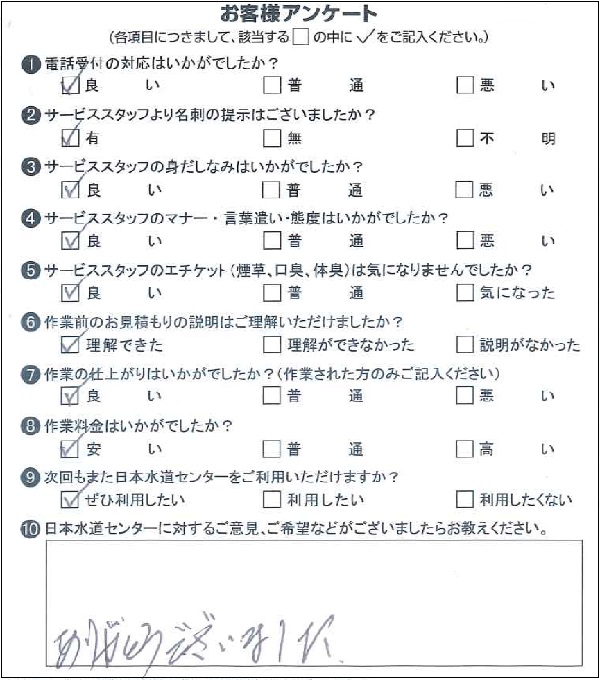 お客様アンケート
(各項目につきまして、該当する□の中に✓をご記入ください。)
❶電話受付の対応はいかがでしたか?
☑良い □普通 □悪い
❷サービススタッフより名刺の提示はございましたか?
☑有 □無 □不明
❸サービススタッフの身だしなみはいかがでしたか?
☑良い □普通 □悪い
❹サービススタッフのマナー・言葉遣い・態度はいかがでしたか?
☑良い □普通 □悪い
❺サービススタッフのエチケット(煙草、口臭、体臭)は気になりませんでしたか?
☑良い □普通 □気になった
❻作業前のお見積もりの説明はご理解いただけましたか?
☑理解できた □理解ができなかった □説明がなかった
❼作業の仕上がりはいかがでしたか?(作業された方のみご記入ください)
☑良い □普通 □悪い
❽作業料金はいかがでしたか?
☑安い □普通 □高い
❾次回もまた日本水道センターをご利用いただけますか?
☑ぜひ利用したい □利用したい □利用したくない
❿日本水道センターに対するご意見、ご希望などがございましたらお教えください。
ありがとうございました。